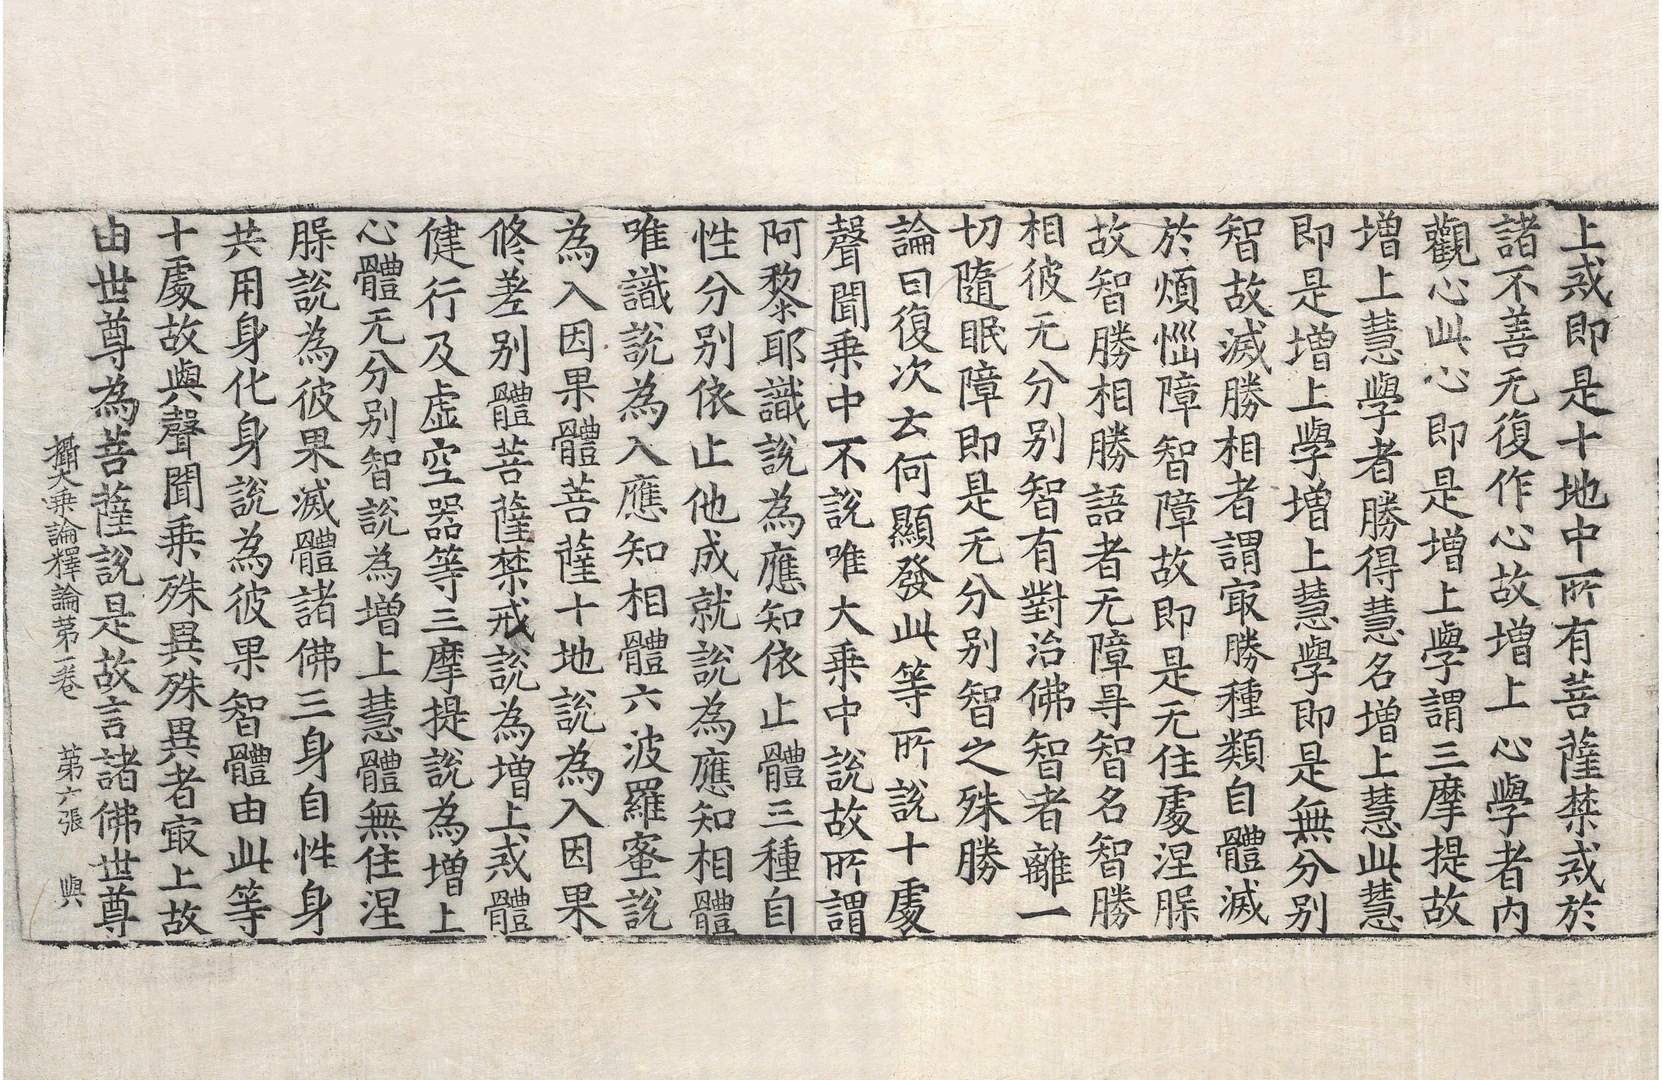 上戒即是十地中所有菩薩禁戒於
諸不善无復作心故增上心學者內
觀心此心即是增上學謂三摩提故
增上慧學者勝得慧名增上慧此慧
即是增上學增上慧學即是無分別
智故滅勝相者謂㝡勝種類自體滅
於煩惱障智障故即是无住處涅脲
故智勝相勝語者无障㝵智名智勝
相彼无分別智有對治佛智者離一
切隨眠障即是无分別智之殊勝
論曰復次云何顯發此等所說十處
聲聞乘中不說唯大乘中說故所謂
阿黎耶識說為應知依止體三種自
性分別依止他成就說為應知相體
唯識說為入應知相體六波羅蜜說
為入因果體菩薩十地說為入因果
修差別體菩薩禁戒說為增上戒體
健行及虛空器等三摩提說為增上
心體无分別智說為增上慧體無住涅
脲說為彼果滅體諸佛三身自性身
共用身化身說為彼果智體由此等
十處故與聲聞乘殊異殊異者㝡上故
由世尊為菩薩說是故言諸佛世尊
攝大乘論釋論苐一卷　苐六張　與